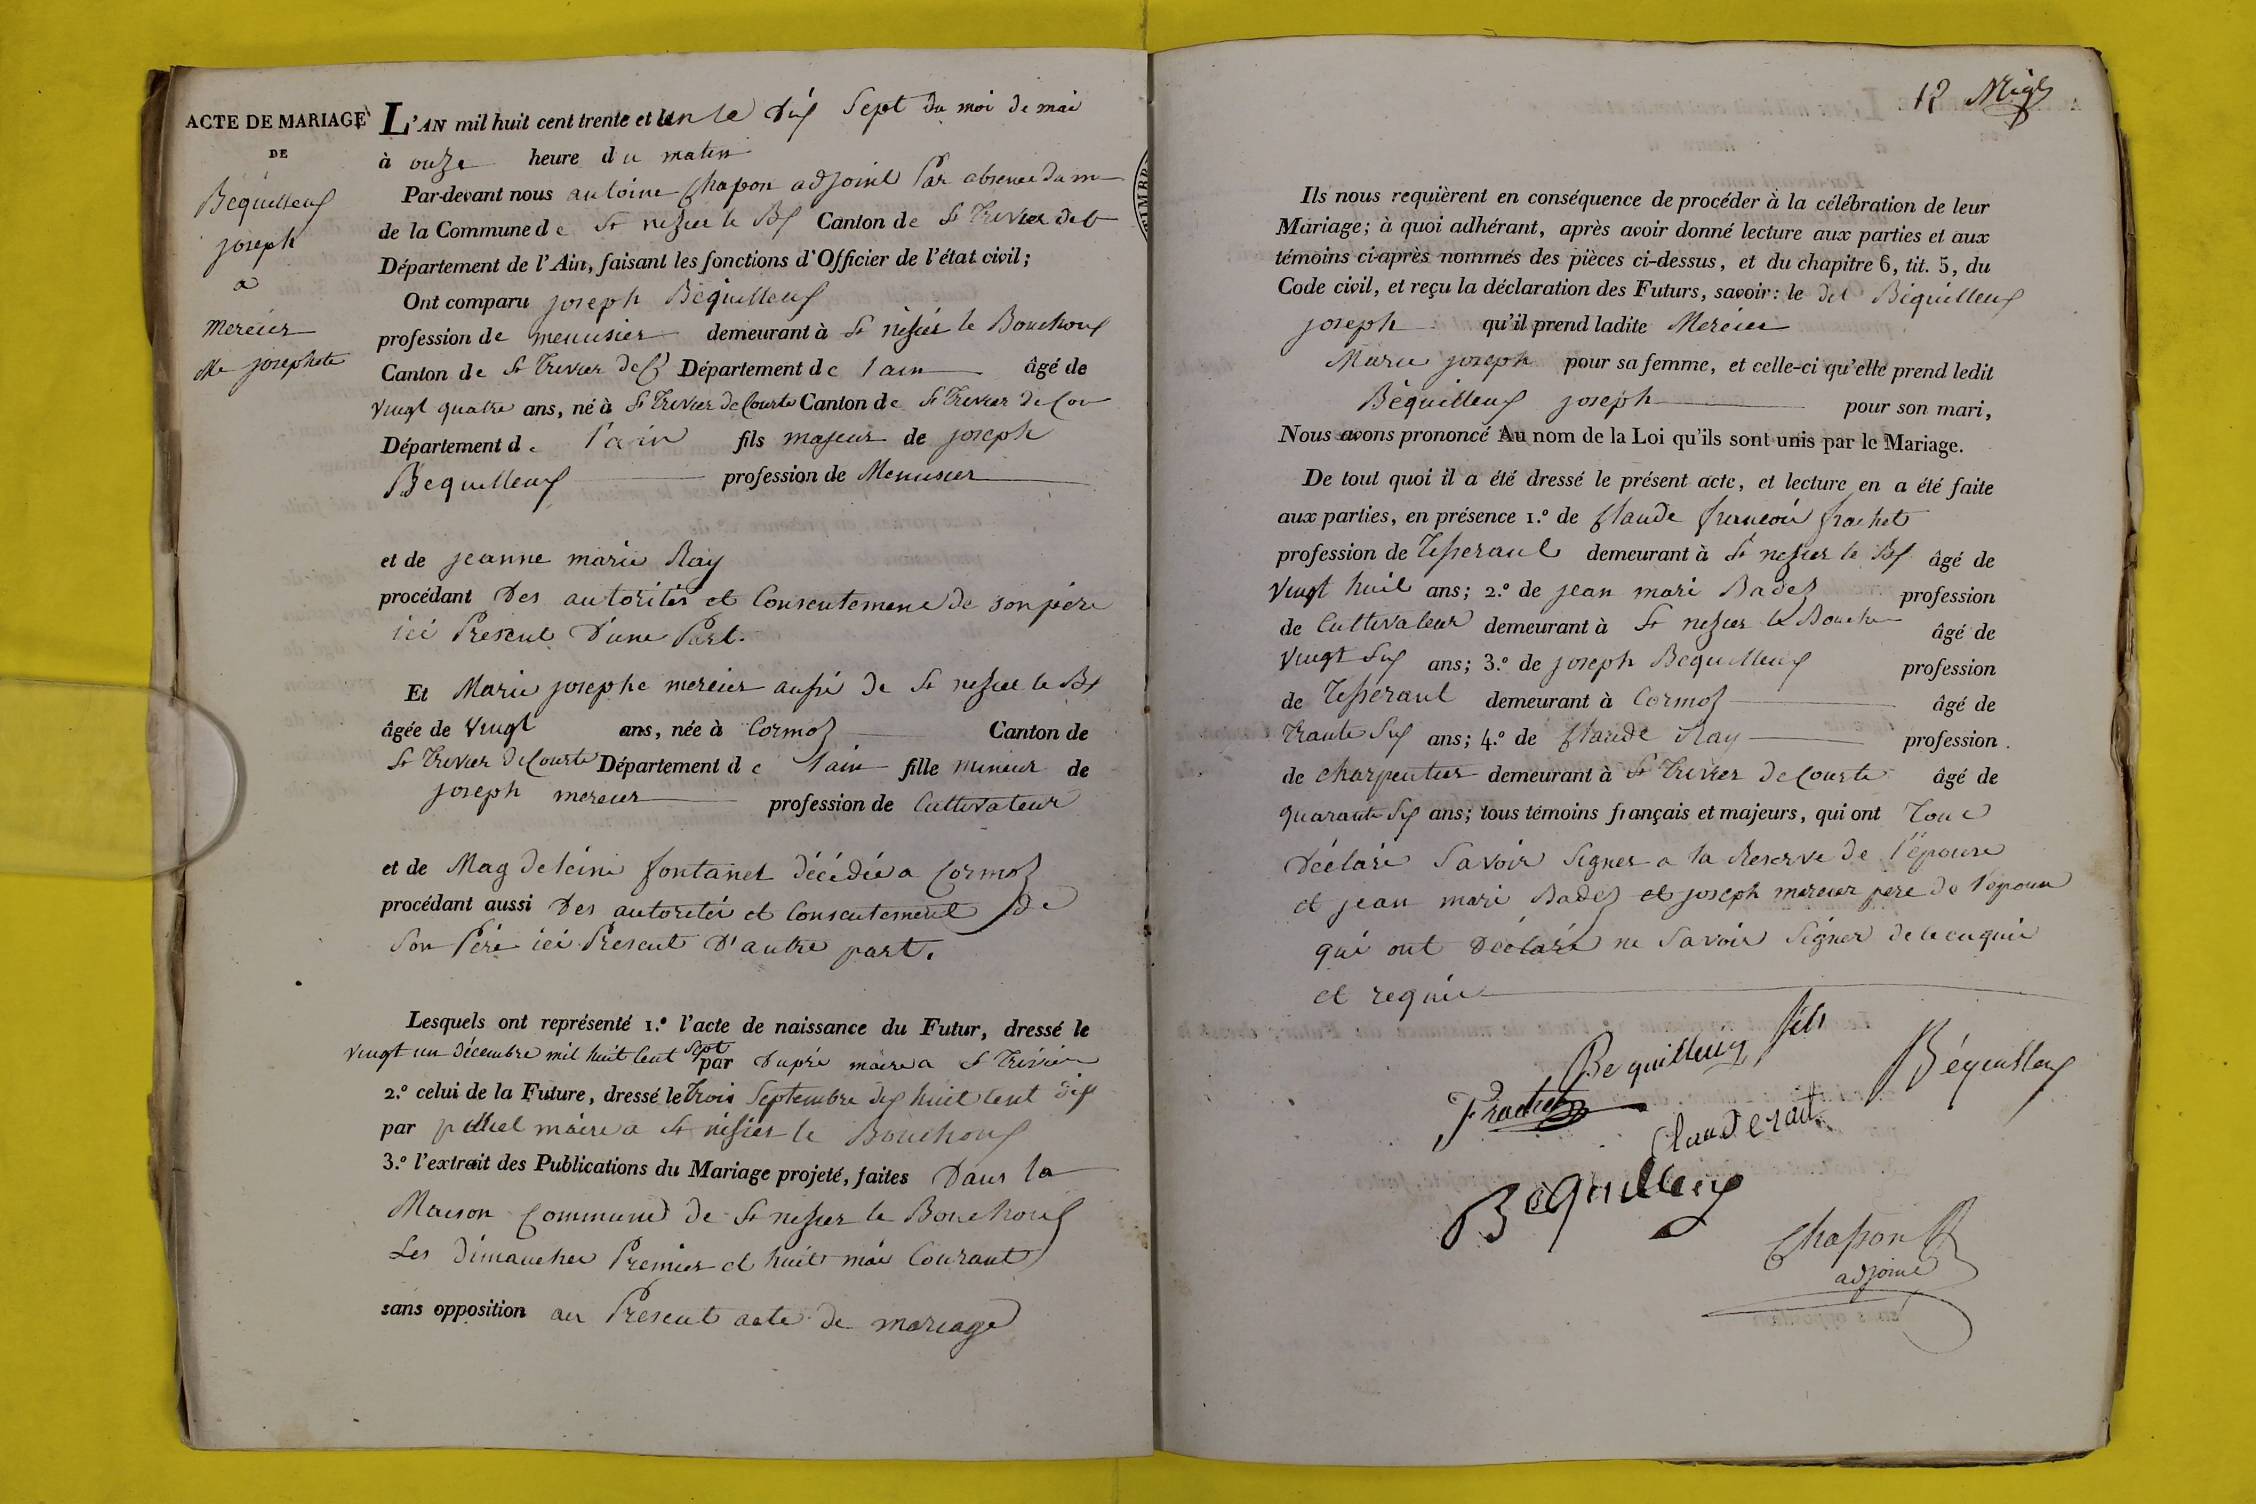 ACTE DE MARIAGE
DE
Béquilleux
joseph
a
mercier
Me josephete
L'AN mil huit cent trente et un le dix sept du moi de mai
à onze heure du matin
Par-devant nous antoine Chapon adjoint Par absence du m
de la Commune de St nesier le Bx Canton de St Trivier de C
Département de l'Ain, faisant les fonctions d'Officier de l'état civil;
Ont comparu joseph Bèquilleux
profession de menuisier demeurant à St nisier le Bouchoux
Canton de St Trivier de C Département de l'ain âgé de
vingt quatre ans, né à St Trivier de Courte Canton de St Trivier de Cou
Département de l'ain fils majeur de joseph
Béquilleux profession de Menusier
et de jeanne marie Ray
procédant Des autorités et Consentement de son père
ici Present D'une Part.
Et Marie josephe mercier aussi de St nesier le Bx
âgée de vingt ans, née à Cormoz Canton de
St Trivier de Courte Département de l'ain fille mineur de
joseph mercier profession de Cultivateur
et de Magdeleine fontanet décédée a Cormoz
procédant aussi Des autorités et Consentement de
Son Père ici Present D'autre part.
Lesquels ont représenté 1.º l'acte de naissance du Futur, dressé le
vingt un décembre mil huit Cent sept par Dupré maire a St Trivier
2.º celui de la Future, dressé le Trois Septembre dix huit Cent dix
par maire a St nisier le Bouchoux
3.º l'extrait des Publications du Mariage projeté, faites Dans la
Maison Commune de St nesier le Bouchoux
Les Dimanches Premier et huit mai Courant
sans opposition au Present acte de mariage
12
Ils nous requièrent en conséquence de procéder à la célébration de leur
Mariage; à quoi adhérant, après avoir donné lecture aux parties et aux
témoins ci-après nommés des pièces ci-dessus, et du chapitre 6, tit. 5, du
Code civil, et reçu la déclaration des Futurs, savoir: le dit Béquilleux
joseph qu'il prend ladite Mercier
Marie joseph pour sa femme, et celle-ci qu'elle prend ledit
Bèquilleux joseph pour son mari,
Nous avons prononcé Au nom de la Loi qu'ils sont unis par le Mariage.
De tout quoi il a été dressé le présent acte, et lecture en a été faite
aux parties, en présence 1.º de Claude francois frachet
profession de Tisseraut demeurant à St nesier le Bx âgé de
vingt huit ans; 2.º de jean mari Badez profession
de Cultivateur demeurant à St nesier le Bouche âgé de
vingt Six ans; 3.º de joseph Bequilleux profession
de Tisseraut demeurant à Cormoz âgé de
Trante Six ans; 4.º de Claude Ray profession
de charpentier demeurant à St Trivier de Courte âgé de
quarante Six ans; tous témoins français et majeurs, qui ont Tous
Déclaré Savoir Signer a la Reserve de l'épouse
et jean mari Badez et joseph mercier pere de l'epouse
qui ont Déclaré ne Savoir Signer de ce enquis
et requis
Bequilleux fils
Béquilleux
Frachet
Claude rait
Bequilleux
Chapon
adjoint